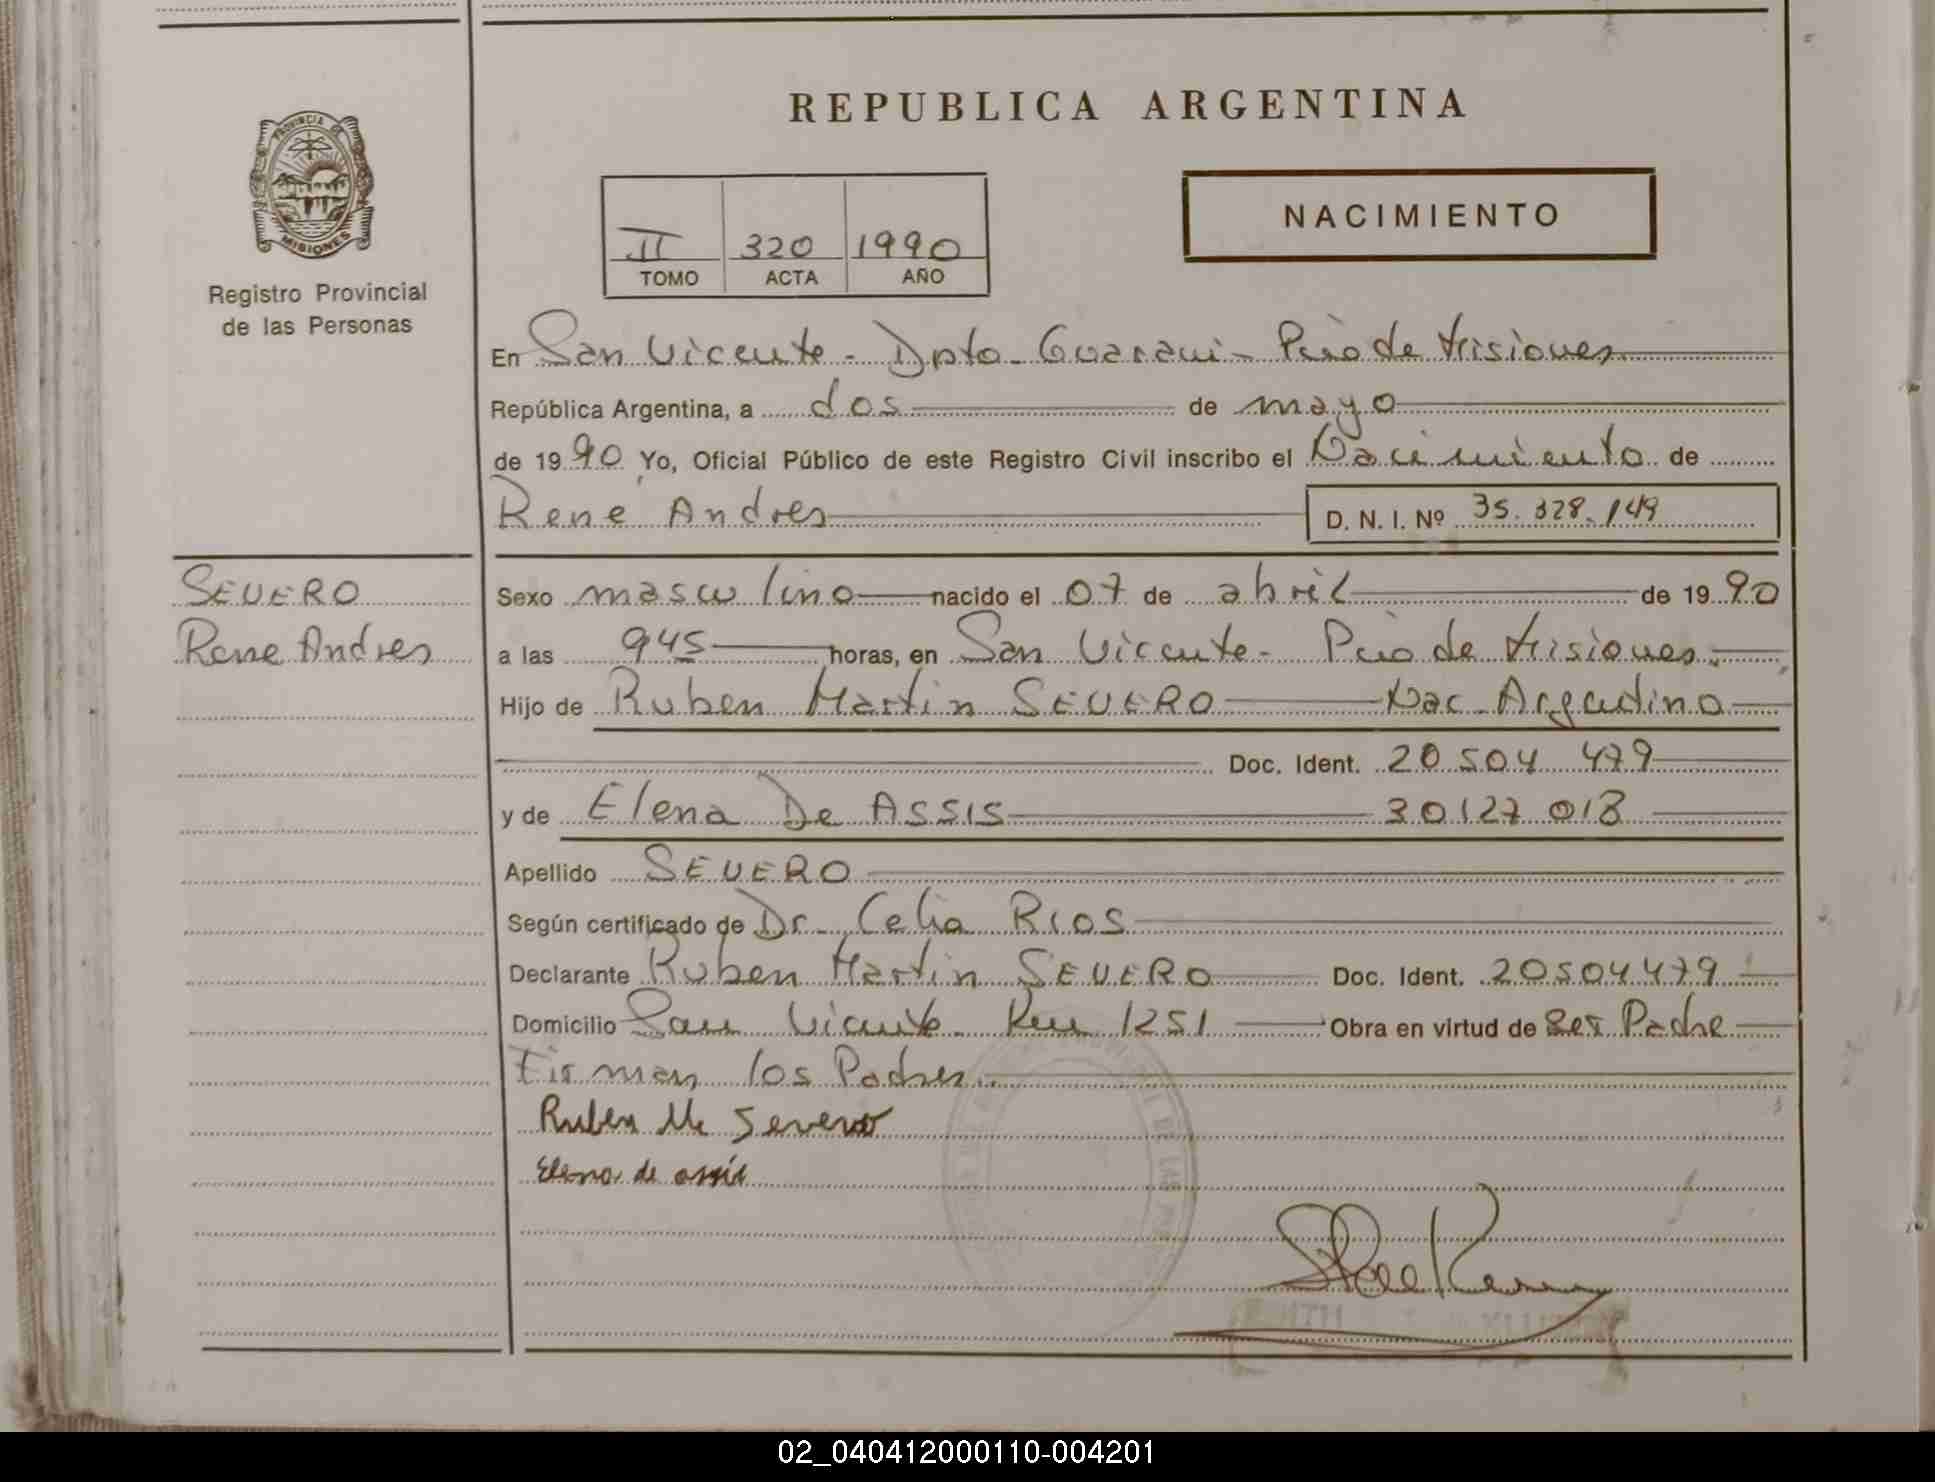 REPUBLICA ARGENTINA
PROVINCIA DE
MISIONES
Registro Provincial
de las Personas
II 320 1990
TOMO ACTA AÑO
NACIMIENTO
En San Vicente - Dpto - Guarani - Pcio de Misiones
República Argentina, a dos de mayo
de 1990 Yo, Oficial Público de este Registro Civil inscribo el Nacimiento de
René Andres D. N. I. Nº 35.328.149
SEVERO
Rene Andres
Sexo masculino nacido el 07 de abril de 1990
a las 945 horas, en San Vicente - Pcio de Misiones.
Hijo de Ruben Martin SEVERO Nac. Argentino
Doc. Ident. 20 504 479
y de Elena De ASSIS 30127 018
Apellido SEVERO
Según certificado de Dr. Celia RIOS
Declarante Ruben Martin SEVERO Doc. Ident. 20504479
Domicilio San Vicente - Km 1251 Obra en virtud de Ser Padre
Firman los Padres.
Ruben M. Severo
Elena de assis
02_040412000110-004201